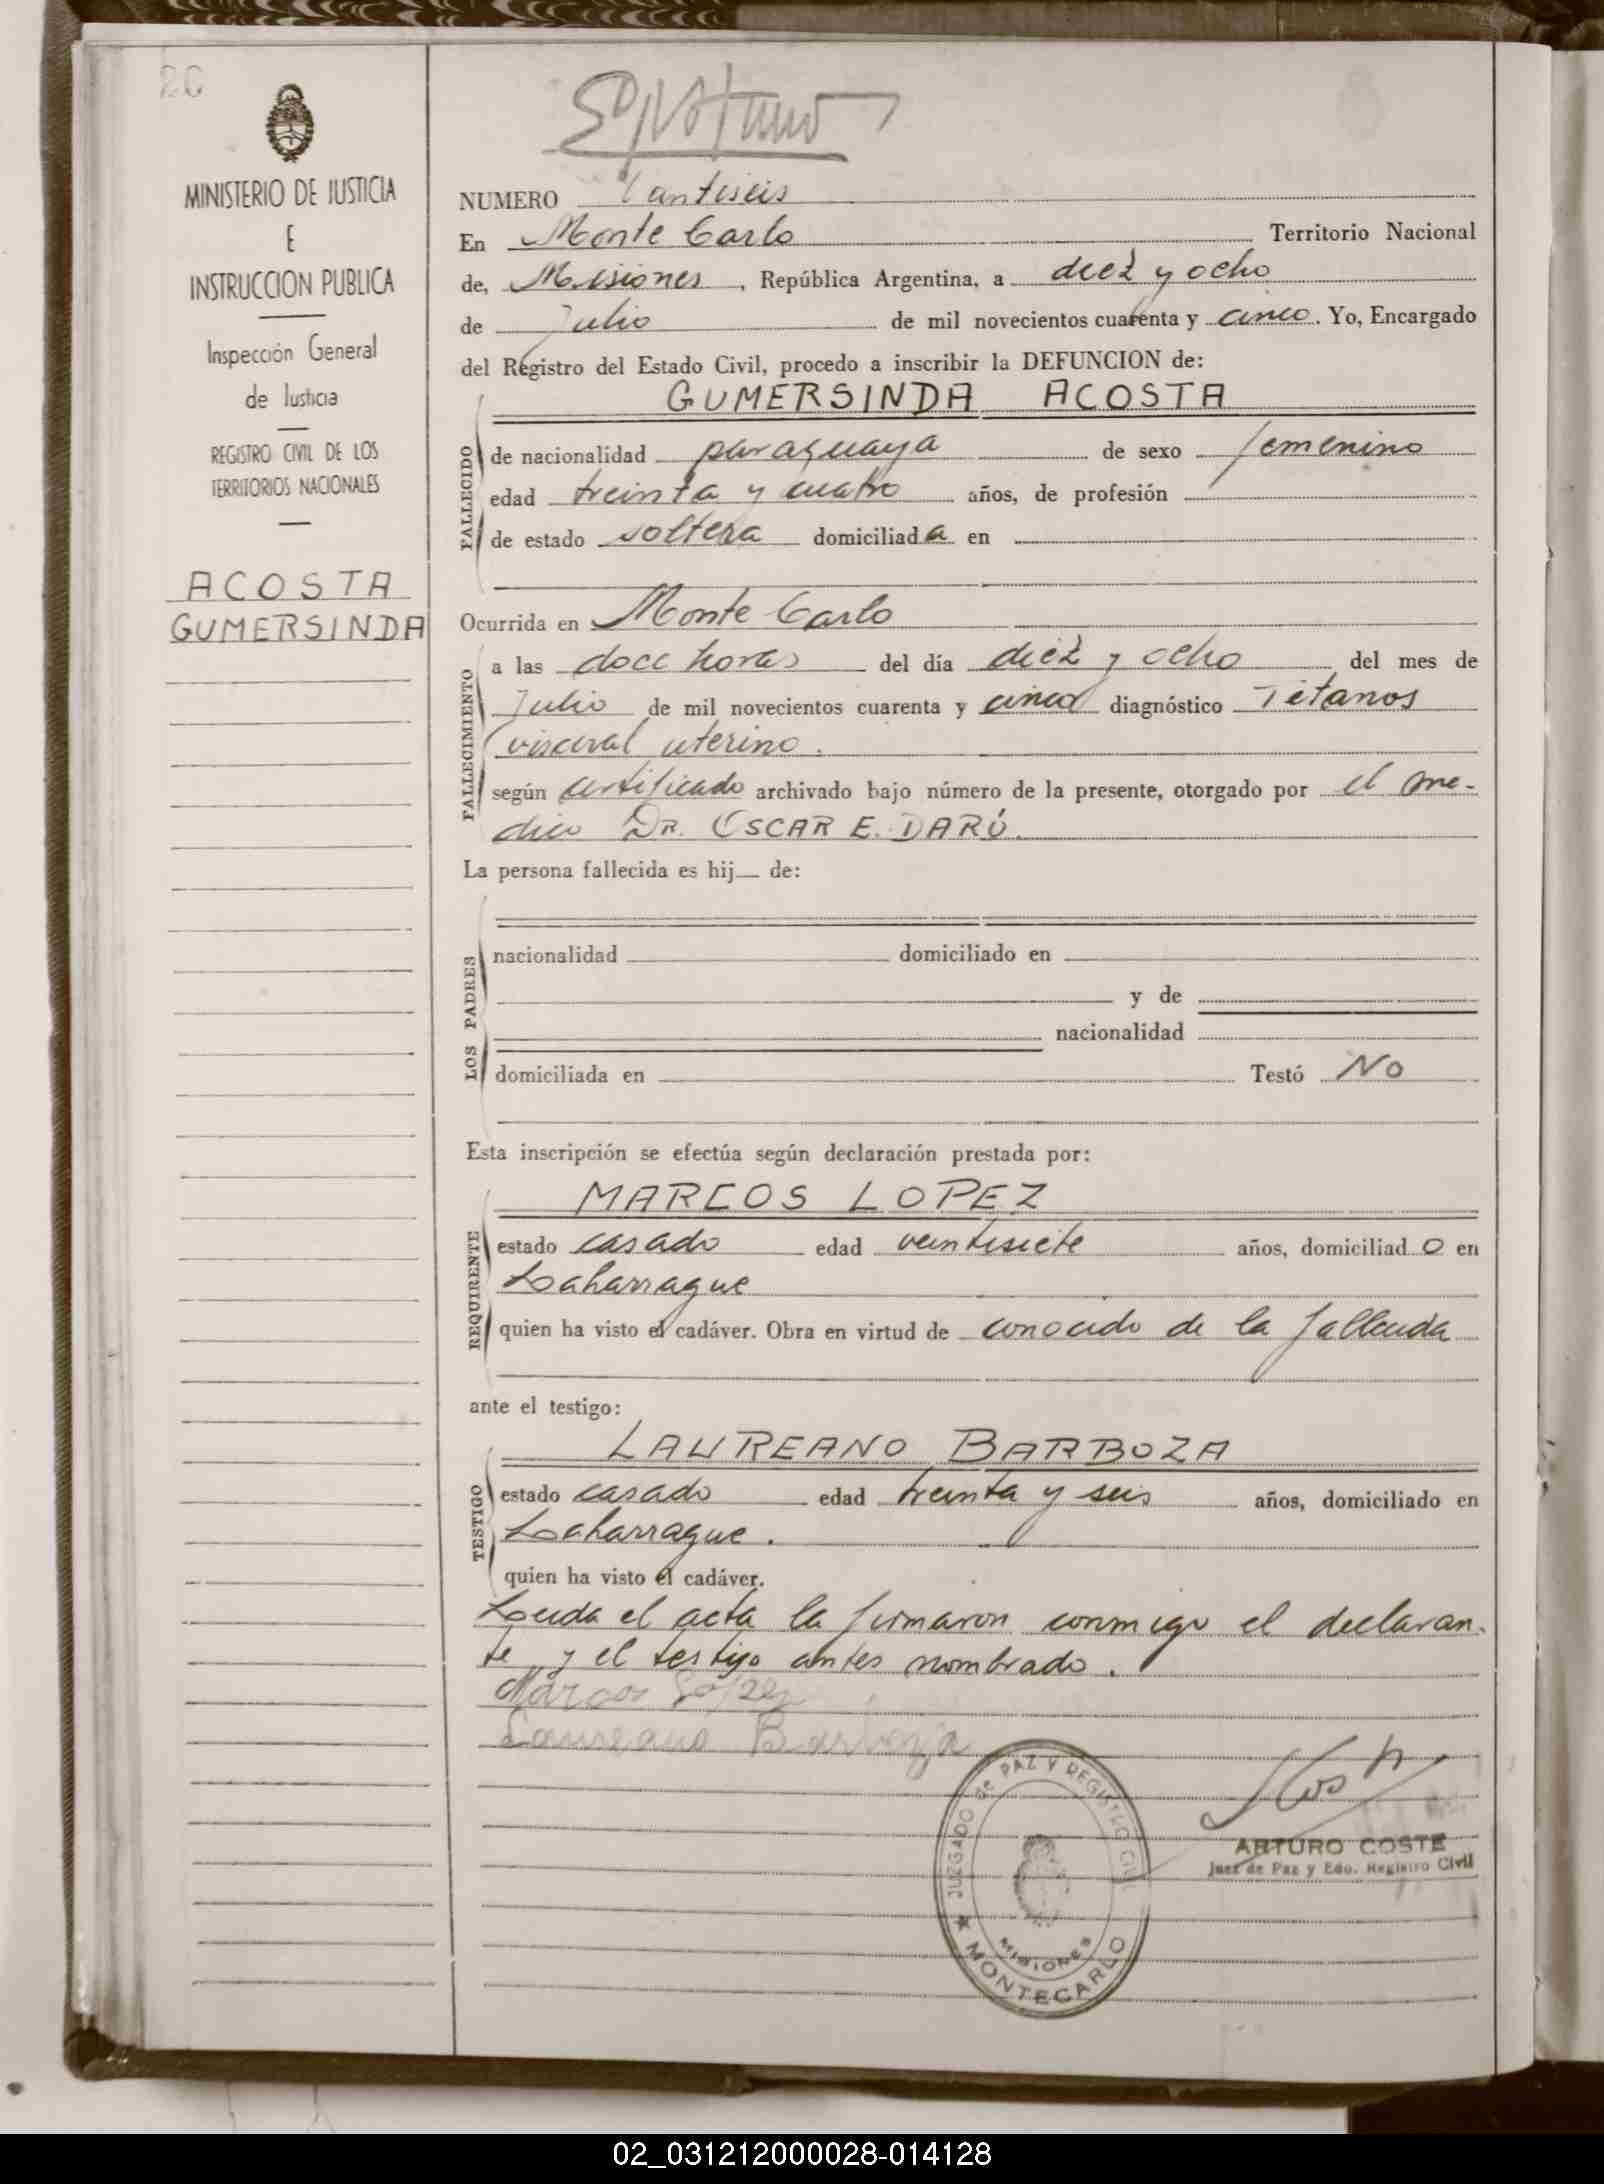 26
MINISTERIO DE JUSTICIA
E
INSTRUCCION PUBLICA
Inspección General
de Justicia
REGISTRO CIVIL DE LOS
TERRITORIOS NACIONALES
ACOSTA
GUMERSINDA
NUMERO
En Monte Carlo Territorio Nacional
de, Misiones, República Argentina, a diez y ocho
de Julio de mil novecientos cuarenta y cinco. Yo, Encargado
del Registro del Estado Civil, procedo a inscribir la DEFUNCION de:
GUMERSINDA ACOSTA
FALLECIDO
de nacionalidad paraguaya de sexo femenino
edad treinta y cuatro años, de profesión
de estado soltera domiciliada en
Ocurrida en Monte Carlo
FALLECIMIENTO
a las doce horas del día diez y ocho del mes de
Julio de mil novecientos cuarenta y cinco diagnóstico Tétanos
visceral uterino.
según certificado archivado bajo número de la presente, otorgado por el me-
dico DR. OSCAR E. DARÚ.
La persona fallecida es hij de:
LOS PADRES
nacionalidad domiciliado en
y de
nacionalidad
domiciliada en Testó No
Esta inscripción se efectúa según declaración prestada por:
MARCOS LOPEZ
REQUIRENTE
estado casado edad veintisiete años, domiciliado en
Laharrague
quien ha visto el cadáver. Obra en virtud de conocido de la fallecida
ante el testigo:
LAUREANO BARBOZA
TESTIGO
estado casado edad treinta y seis años, domiciliado en
Laharrague.
quien ha visto el cadáver.
Leida el acta la firmaron conmigo el declaran-
te y el testigo antes nombrado.
Marcos Lopez
Laureano Barboza
JUZGADO de PAZ Y REGISTRO CIVIL
MISIONES
★ MONTECARLO
ARTURO COSTE
Juez de Paz y Edo. Registro Civil
02_031212000028-014128